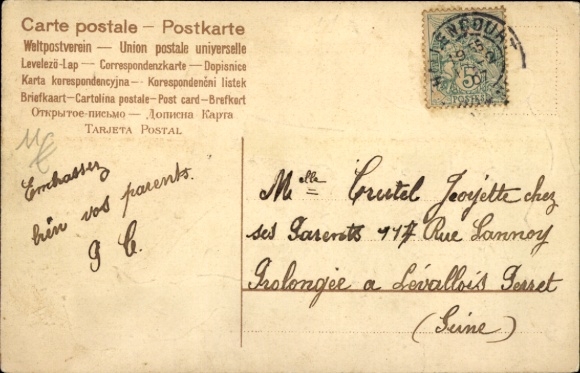 Carte postale — Postkarte
Weltpostverein — Union postale universelle
Levelező-Lap — Correspondenzkarte — Dopisnice
Karta korespondencyjna — Korespondenční lístek
Briefkaart — Cartolina postale — Post card — Brefkort
Открытое-письмо — Дописна Карта
Tarjeta Postal
Embrasser
bien vos parents.
G C.
Melle chez
ses Parents 117 Rue Lannoy
Prolongée a Levallois Perret
(Seine)
5